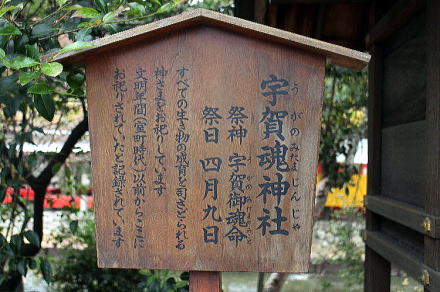 宇賀魂神社
うがのみたまじんじゃ
祭神 宇賀御魂命
祭日 四月九日
すべての生き物の成育を司どられる
神さまをお祀りしています
文明年間(室町時代)以前からここに
お祀りされていたと記録されています